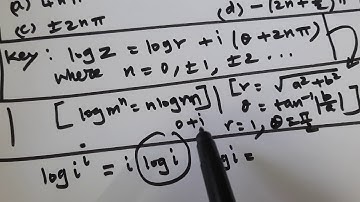 (a) 4nπ
(c) ±2nπ
(d) -(2n+
Key: log z = log r + i(θ+2nπ)
where n = 0, ±1, ±2 ...
[log mⁿ = n log m] [r = √a²+b²
θ = tan⁻¹|b/a|]
0+i r=1, θ=π/2
log iⁱ = i log i log i =